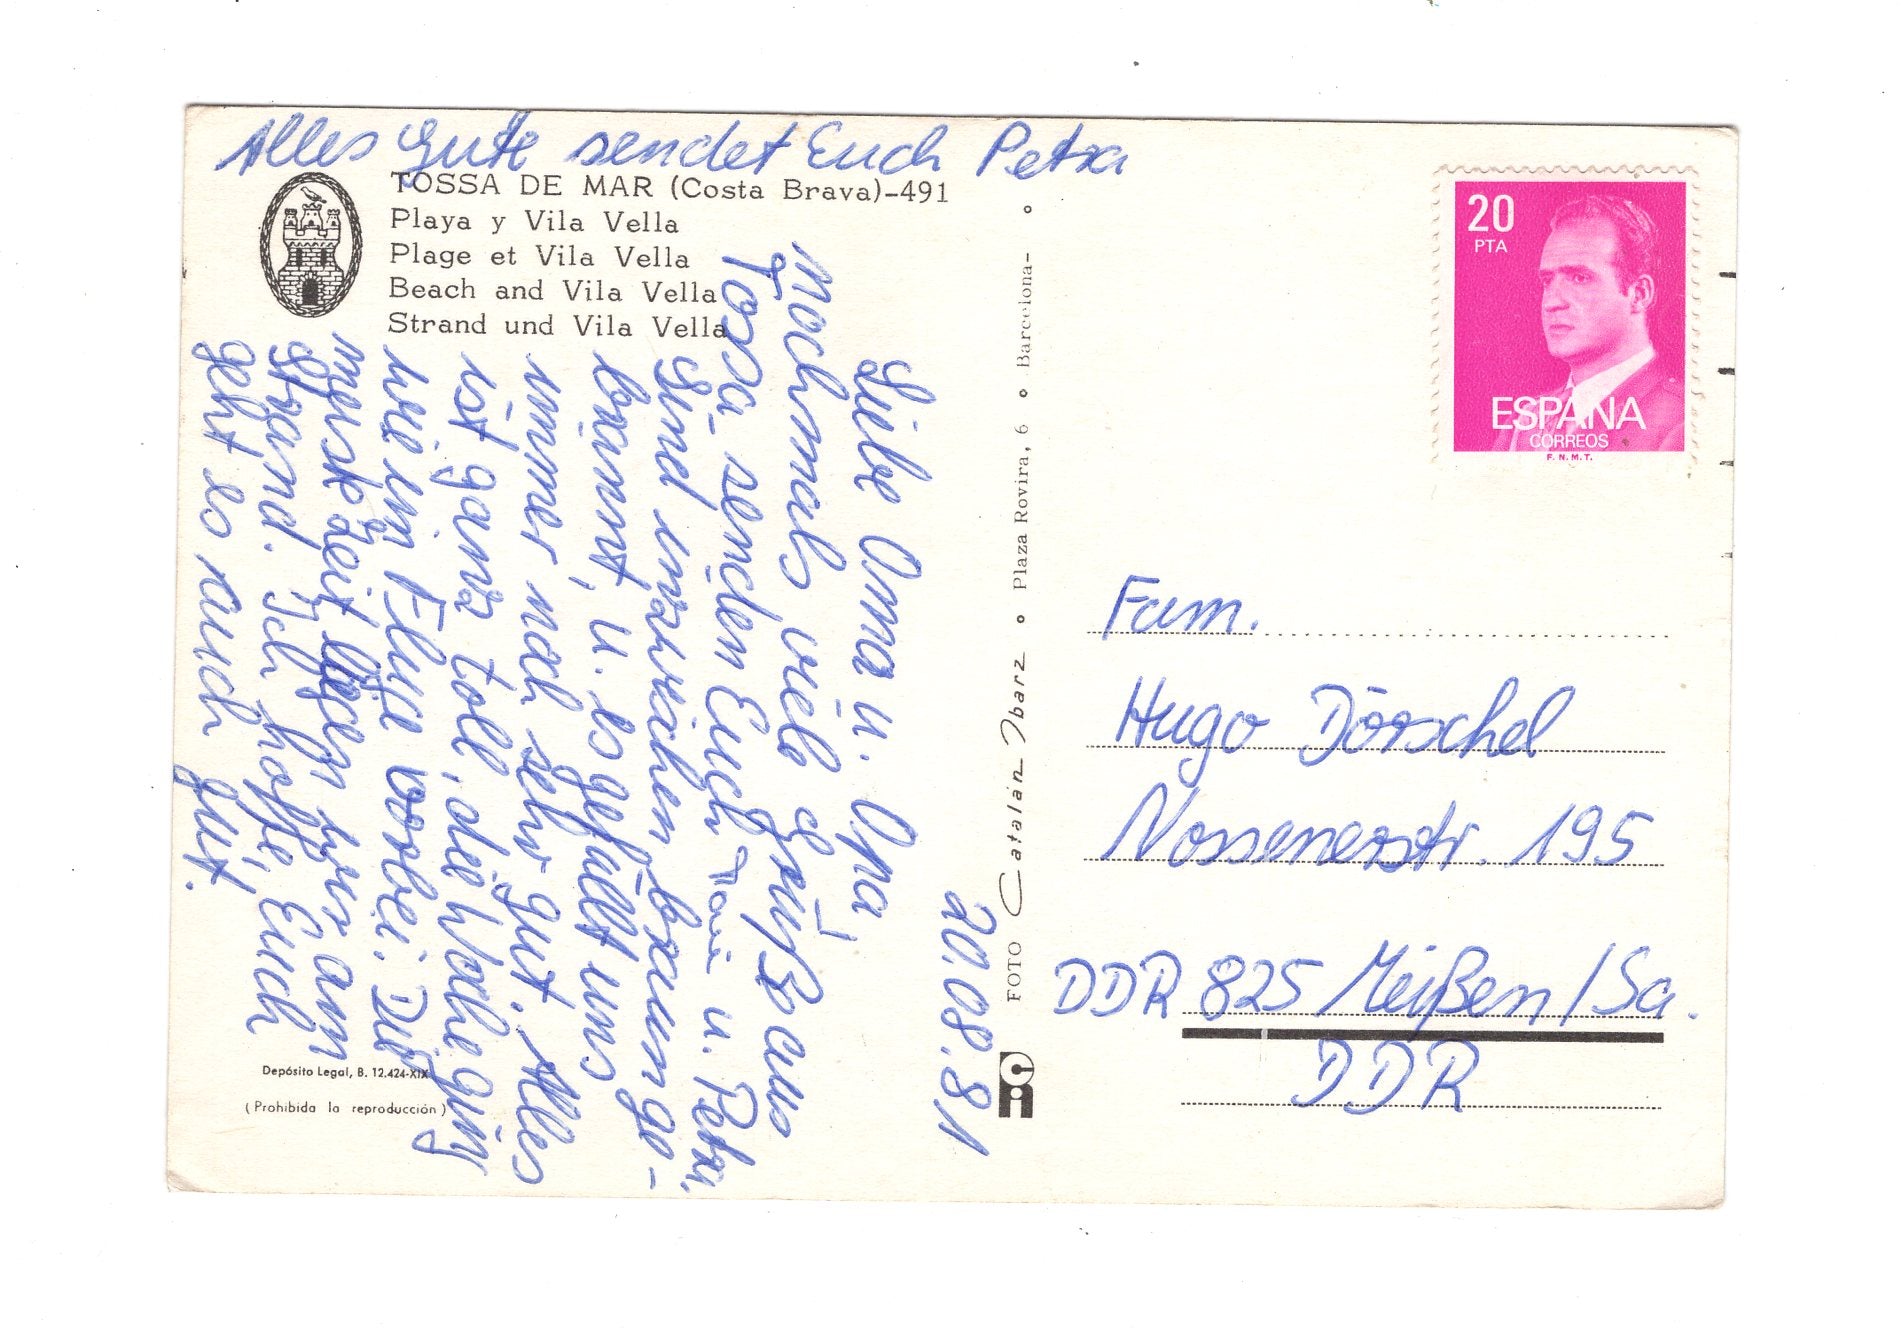 Alles Gute sendet Euch Petra
TOSSA DE MAR (Costa Brava)-491
Playa y Vila Vella
Plage et Vila Vella
Beach and Vila Vella
Strand und Vila Vella
20.08.81
Liebe Oma u. Opa,
nochmals viele Grüße aus
Tossa senden Euch u. Petra.
Sind inzwischen braun ge-
brannt, u. es gefällt uns
immer noch sehr gut. Alles
ist ganz toll, die Woche ging
wie im Fluge vorbei. Die
meiste Zeit liegen wir am
Strand. Ich hoffe, Euch
geht es auch gut.
Depósito Legal, B. 12.424-XIX
(Prohibida la reproducción)
FOTO Catalán Ibarz Plaza Rovira, 6 Barcelona-
20
PTA
ESPAÑA
CORREOS
F.N.M.T.
Fam.
Hugo Dörschel
Nossenerstr. 195
DDR 825 Meißen/Sa.
DDR